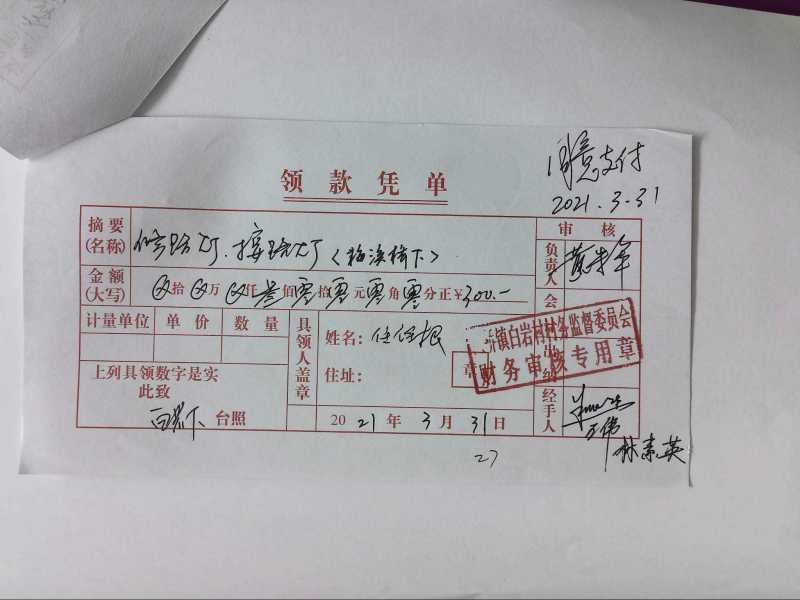 同意支付
2021.3-31
领款凭单
摘要(名称) 修路灯、接路灯(梅溪桥下)
审核
负责人
金额(大写) 拾 万 仟 叁佰零拾零元零角零分正¥300.—
会
计量单位 单价 数量
具领人盖章
姓名:任任根
住址:
章
镇白岩村村务监督委员会
财务审核专用章
出纳
上列具领数字是实
此致
白岩下 台照
2021年3月31日
经手人
王伟
林素英
27